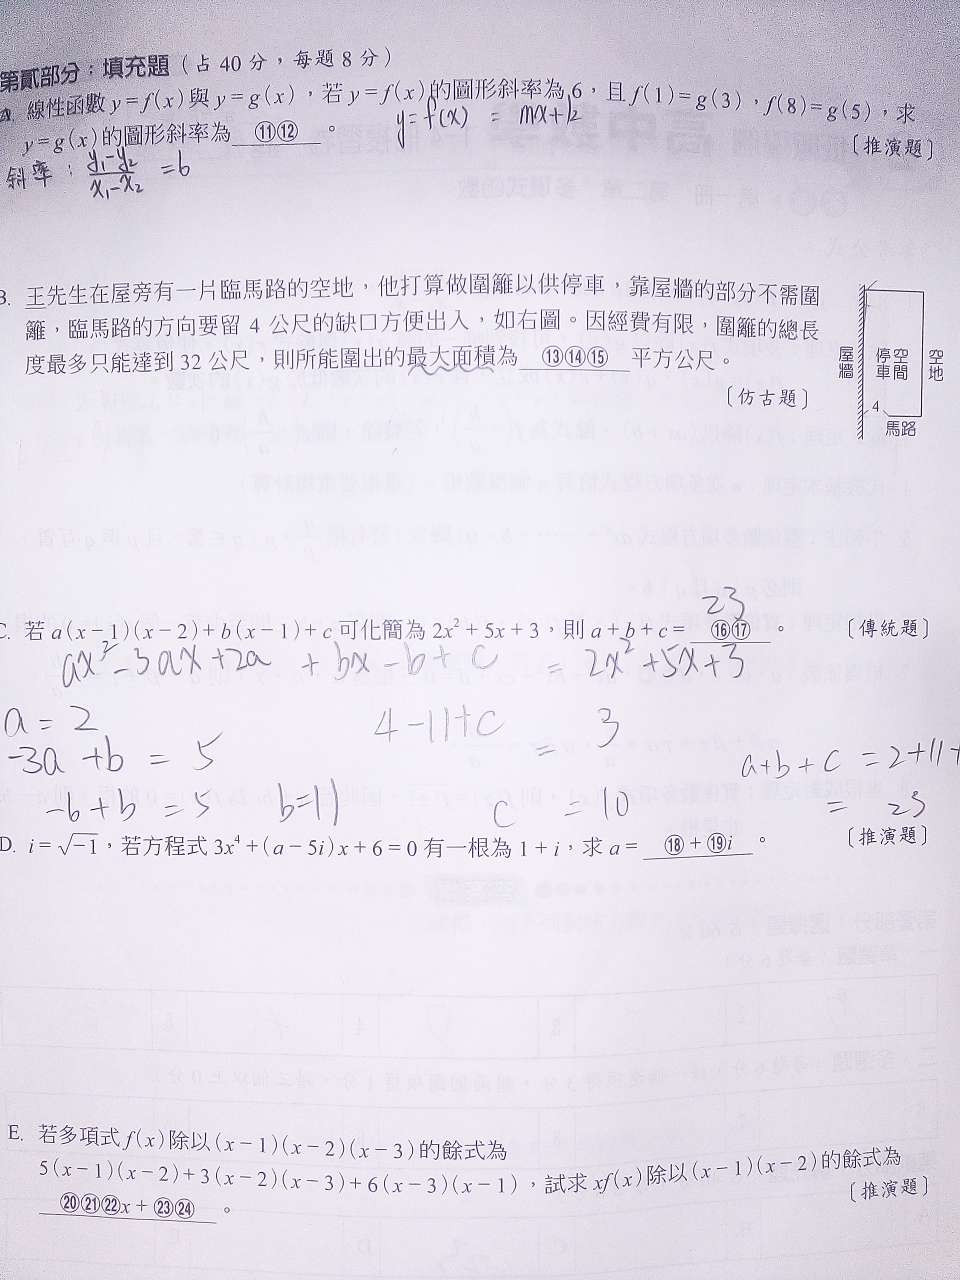 第貳部分：填充題（占 40 分，每題 8 分）
A. 線性函數 y=f(x) 與 y=g(x)，若 y=f(x) 的圖形斜率為 6，且 f(1)=g(3)，f(8)=g(5)，求
y=g(x) 的圖形斜率為 ⑪⑫ 。
y=f(x) = mx+b
〔推演題〕
斜率：(y₁-y₂)/(x₁-x₂) =6
B. 王先生在屋旁有一片臨馬路的空地，他打算做圍籬以供停車，靠屋牆的部分不需圍
籬，臨馬路的方向要留 4 公尺的缺口方便出入，如右圖。因經費有限，圍籬的總長
度最多只能達到 32 公尺，則所能圍出的最大面積為 ⑬⑭⑮ 平方公尺。
〔仿古題〕
屋牆
停車空間
空地
4
馬路
23
C. 若 a(x-1)(x-2)+b(x-1)+c 可化簡為 2x²+5x+3，則 a+b+c= ⑯⑰ 。
〔傳統題〕
ax²-3ax+2a +bx-b+c = 2x²+5x+3
a=2
4-11+c = 3
-3a+b = 5
a+b+c = 2+11+
-6+b=5 b=11 c = 10
= 23
D. i=√-1，若方程式 3x⁴+(a-5i)x+6=0 有一根為 1+i，求 a= ⑱+⑲i 。
〔推演題〕
E. 若多項式 f(x) 除以 (x-1)(x-2)(x-3) 的餘式為
5(x-1)(x-2)+3(x-2)(x-3)+6(x-3)(x-1)，試求 xf(x) 除以 (x-1)(x-2) 的餘式為
⑳㉑㉒x+㉓㉔ 。
〔推演題〕